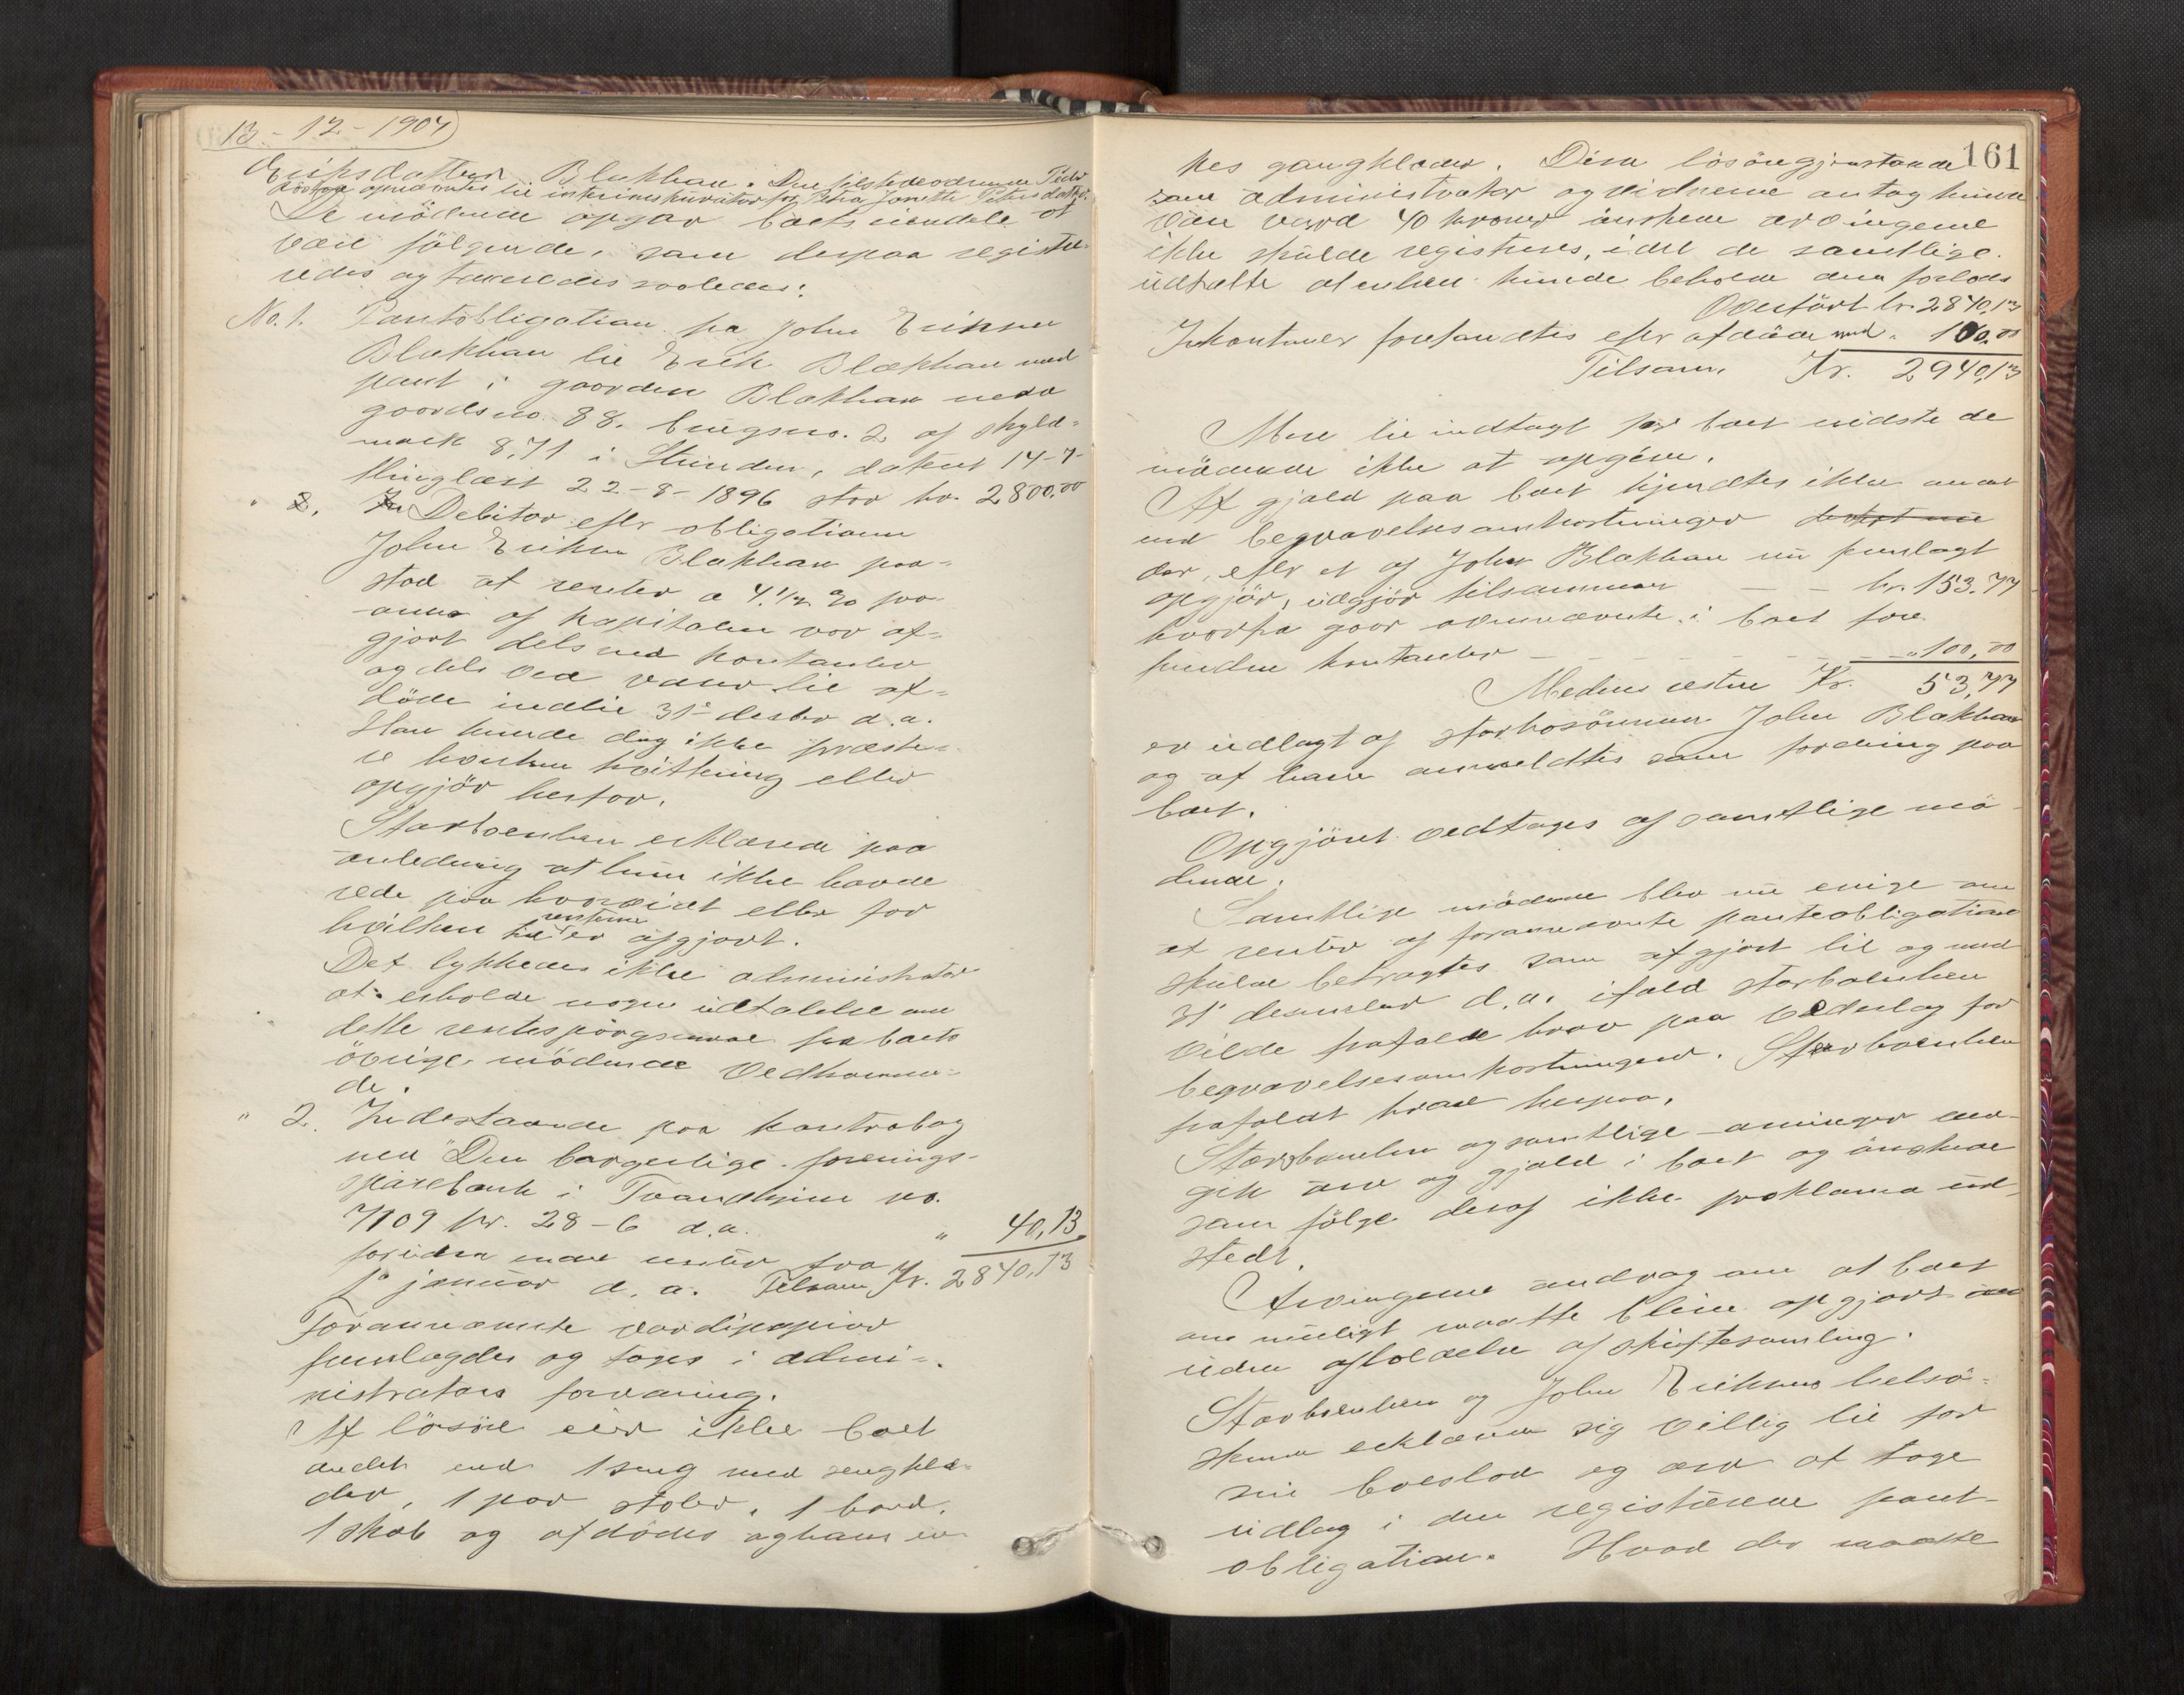 13-12-1904
Eriksdatter Blækhan. Den tilstedeværende Peder
opnævntes til interimskurator for Petra Jonette Petersdatter.
De mødende opgav boets eiendele at
være følgende, som derpaa registre-
redes og taxeredes saaledes:
No. 1. Pantobligation fra John Eriksen
Blækhan til Erik Blækhan med
pant i gaarden Blækhan nedre
gaardsno. 88. brugsno. 2 af skyld-
mark 8,71 i Strinden, dateret 14-7-
thinglæst 22-8-1896 stor kr. 2800,00
" 2. Debitor efter obligationen
John Eriksen Blækhan paa-
stod at renter a 4 1/2 % pro
anno af kapitalen var af-
gjort dels med kontanter
og dels ved varer til af-
døde indtil 31te desbr d.a.
Han kunde dog ikke præste-
re hverken kvittering eller
opgjør herfor.
Starboenken erklærede paa
anledning at hun ikke havde
rede paa hvorvidt eller for
hvilken tid renterne er afgjort.
Det lykkedes ikke administrator
at erholde nogen udtalelse om
dette rentespørgsmaal fra boets
øvrige mødende vedkommen-
de.
" 2. Indestaaende paa kontrabog
med "Den borgerlige forenings-
sparebank i Trondhjem no.
7109 pr. 28-6 d.a. " 40,13
foruden renter fra
1ste januar d.a. Tilsam Kr. 2840,13
Forannævnte værdipapirer
fremlagdes og toges i admi-
nistrators forvaring.
Af løsøre eier ikke boet
andet end 1 seng med sengklæ-
der, 1 par stoler, 1 bord,
1 skab og afdødes og hans en-
161
kes gangklæder. Disse løsøregjenstande
som administrator og vidnerne antog kunde
være værd 40 kroner ønskede arvingerne
ikke skulde registreres, idet de samtlige
udtalte at enken kunde beholde dem forlods
Overført kr. 2840,13
I kontanter forefandtes efter afdøde med " 100,00
Tilsam. Kr. 2940,13
Mere til indtægt for boet vidste de
mødende ikke at opgive.
Af gjæld paa boet kjendtes ikke andet
end begravelsesomkostninger
der, efter et af John Blækhan nu fremlagt
opgjør, udgjør tilsammen — — kr. 153.77
hvorfra gaar ovennævnte i boet fore-
fundne kontanter — — — — — " 100,00
Medens resten Kr. 53,77
er udlagt af starbosønnen John Blækhan
og af ham anmeldtes som fordring paa
boet.
Opgjøret vedtages af samtlige mø-
dende.
Samtlige mødende blev nu enige om
at renter af forannævnte panteobligation
skulde betragtes som afgjort til og med
31te desember d.a. ifald starboenken
vilde frafalde krav paa vederlag for
begravelsesomkostninger. Starboenken
frafaldt krav herpaa.
Starboenken og samtlige arvinger ved-
gik arv og gjæld i boet og ønskede
som følge deraf ikke proklama ud-
stedt.
Arvingerne androg om at boet
om muligt maatte blive opgjort
uden afholdelse af skiftesamling.
Starboenken og John Eriksens helsø-
skende erklærede sig villig til for
sin boeslod og arv at tage
udlæg i den registrerede pant-
obligation. Hvad der maatte